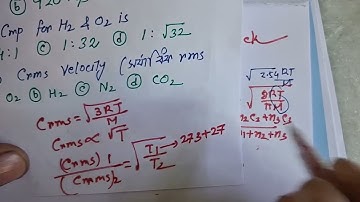 b 920
Cmp for H₂ & O₂ is
4:1 c 1:32 d 1:√32
Crms velocity ( rms
O₂ b H₂ c N₂ d CO₂
Crms = √3RT/M
Crms ∝ √T
(Crms)1/(Crms)2 = √T₁/T₂ → 273+27
ck
√2.54RT
√8RT/πM
n₂C₂ + n₃C₃
n₁+n₂+n₃